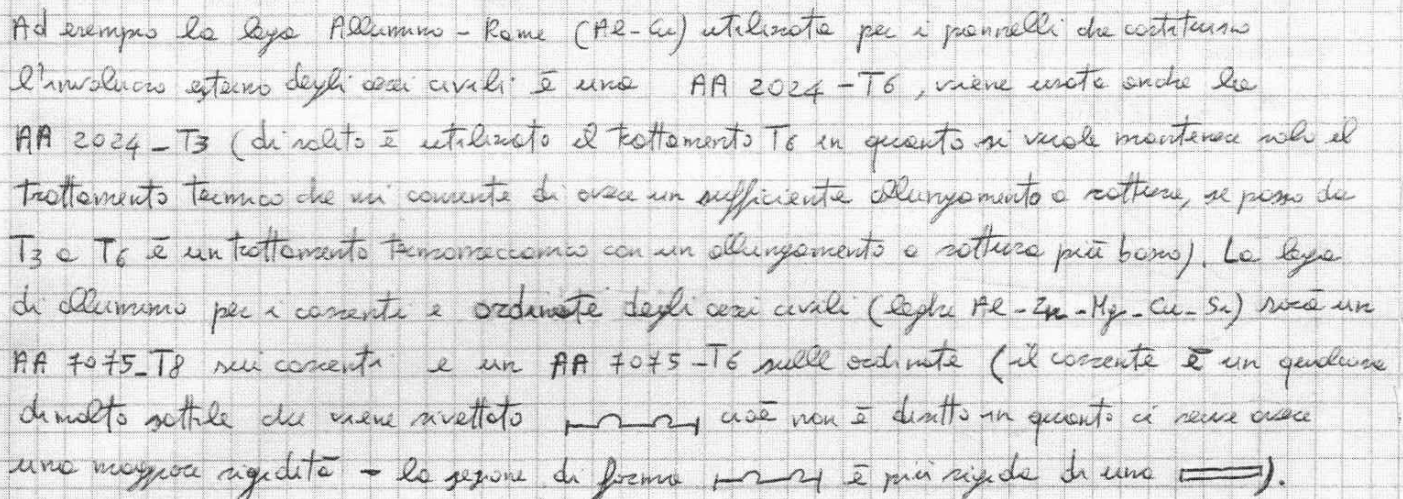 Ad esempio la lega Alluminio - Rame (Al-Cu) utilizzata per i pannelli che costituiscono
l'involucro esterno degli aerei civili è una AA 2024 - T6, viene usata anche la
AA 2024 - T3 (di solito è utilizzato il trattamento T6 in quanto si vuole mantenere solo il
trattamento termico che mi consente di avere un sufficiente allungamento a rottura, se passo da
T3 a T6 è un trattamento termomeccanico con un allungamento a rottura più basso). La lega
di alluminio per i correnti e ordinate degli aerei civili (leghe Al-Zn-Mg-Cu-Si) sarà un
AA 7075-T8 sui correnti e un AA 7075-T6 sulle ordinate (il corrente è un qualcosa
di molto sottile che viene rivettato cioè non è diritto in quanto ci serve avere
una maggiore rigidità - la sezione di forma è più rigida di una ).